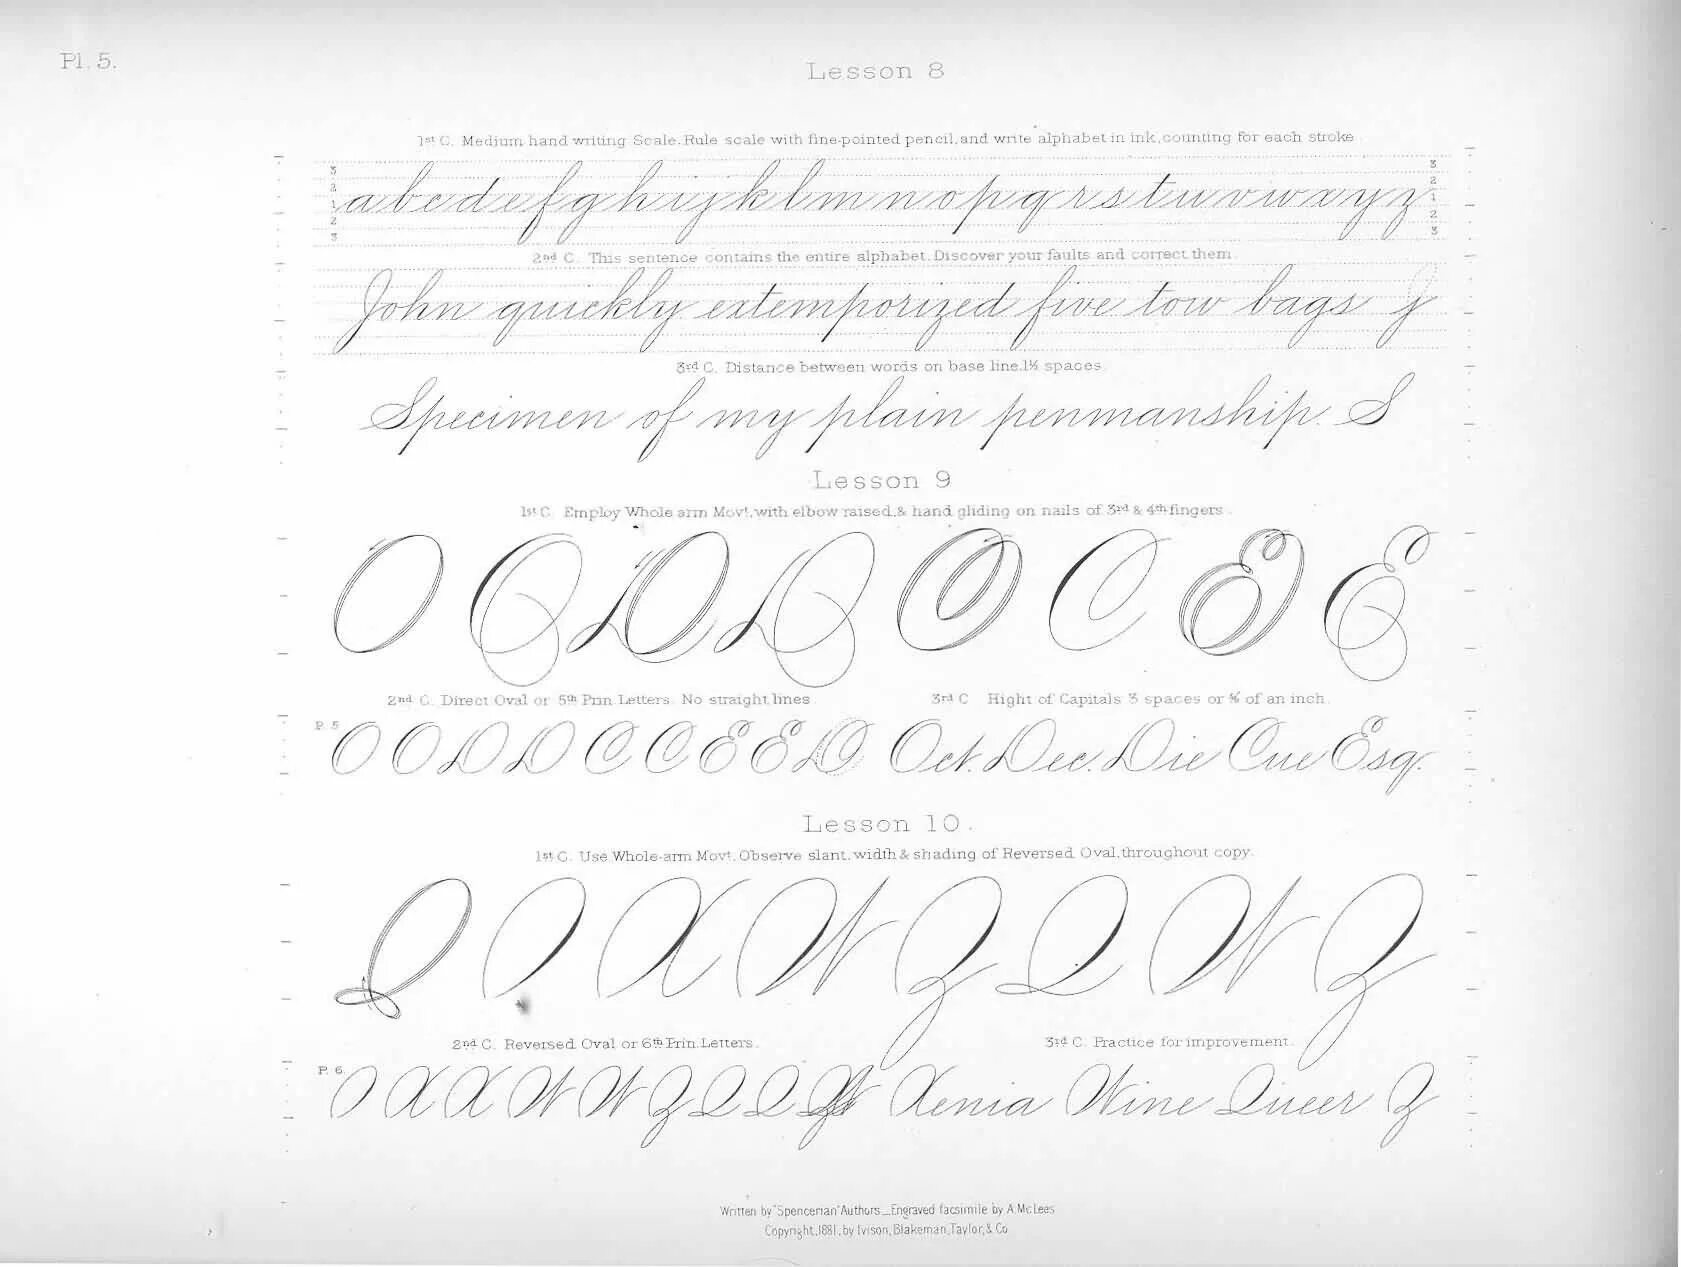 Pl. 5.
Lesson 8
1st C. Medium hand writing Scale. Rule scale with fine-pointed pencil, and write alphabet in ink, counting for each stroke
3 3
2 2
1 a b c d e f g h i j k l m n o p q r s t u v w x y z 1
2 2
3 3
2nd C. This sentence contains the entire alphabet. Discover your faults and correct them.
John quickly extemporized five tow bags J
3rd C. Distance between words on base line, 1½ spaces.
Specimen of my plain penmanship. S
Lesson 9
1st C. Employ Whole arm Movt. with elbow raised, & hand gliding on nails of 3rd & 4th fingers.
O O D D O C E E
2nd C. Direct Oval or 5th Prin. Letters. No straight lines. 3rd C Hight of Capitals 3 spaces or ⅜ of an inch.
P. 5 O O D D C C E E D Oct. Dec. Die Cue Esq.
Lesson 10.
1st C. Use Whole-arm Movt. Observe slant, width & shading of Reversed Oval, throughout copy.
Q X W Z Q W Z
2nd C. Reversed Oval or 6th Prin. Letters. 3rd C. Practice for improvement.
P. 6. X X W W Z Q Q Xenia Wine Queer Z
Written by "Spencerian" Authors_Engraved facsimile by A. McLees
Copyright, 1881, by Ivison, Blakeman, Taylor, & Co